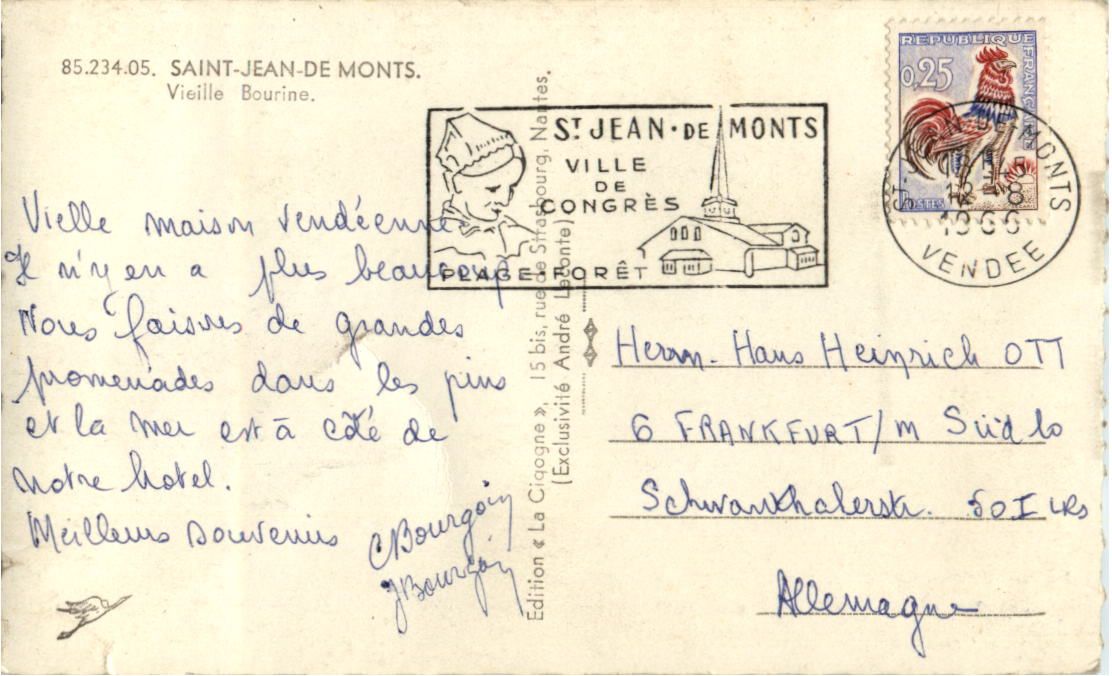 85.234.05. SAINT-JEAN-DE MONTS.
Vieille Bourine.
Vielle maison vendéenne
Il n'y en a plus beaucoup
Nous faisons de grandes
promenades dans les pins
et la mer est à côté de
notre hotel.
Meilleurs souvenirs
CBourgoin
JBourgoin
Edition « La Cigogne », 15 bis, rue de Strasbourg, Nantes.
(Exclusivité André Leconte)
ST JEAN·DE MONTS
VILLE
DE
CONGRÈS
PLAGE·FORÊT
REPUBLIQUE FRANÇAISE
0,25
POSTES
ST-JEAN-DE-MONTS
1966
VENDEE
Herrn. Hans Heinrich OTT
6 FRANKFURT/M Süd 10
Schwanthalerstr. 50 I
Allemagne